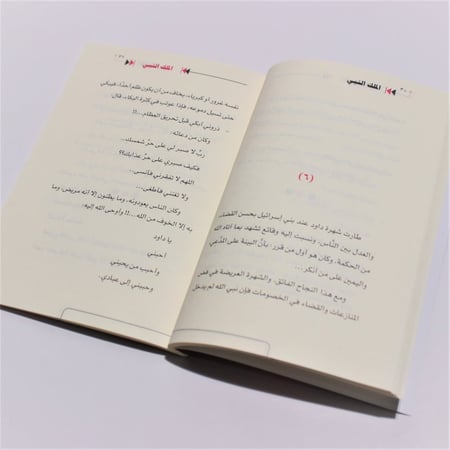 الملك النبي
(٦)
طارت شهرة داود عند بني إسرائيل بحسن القضاء،
والعدل بين النَّاس، ونسبت إليه وقائع تشهد بما آتاه الله
من الحكمة، وكان هو أول من قرر: بأنَّ البينة على المُدَّعي
واليمين على من أنكر...
ومع هذا النجاح الفائق، والشهرة العريضة في فض
المنازعات والقضاء في الخصومات فإن نبي الله لم يدخل
الملك النبي
نفسه غرور أو كبرياء، يخاف من أن يكون ظلم أحدًا، فيبكي
حتى تسيل دموعه، فإذا عوتب في كثرة البكاء، قال:
ذروني أبكي قبل تحريق العظام...!!
وكان من دعائه.
ربِّ لا صبر لي على حرِّ شمسك..
فكيف صبري على حرِّ عذابك؟!
اللهم لا تفقرني فأنسى..
ولا تغنني فأطغى..
وكان الناس يعودونه، وما يظنون إلا أنه مريض وما
به إلا الخوف من الله...!! وأوحى الله إليه.
يا داود
أحبني
وأحبب من يحبني
وحببني إلى عبادي.